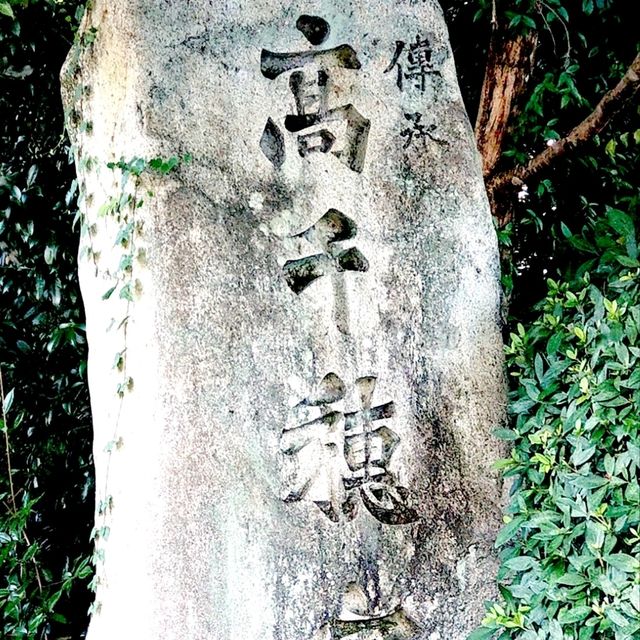 傳承
高千穂